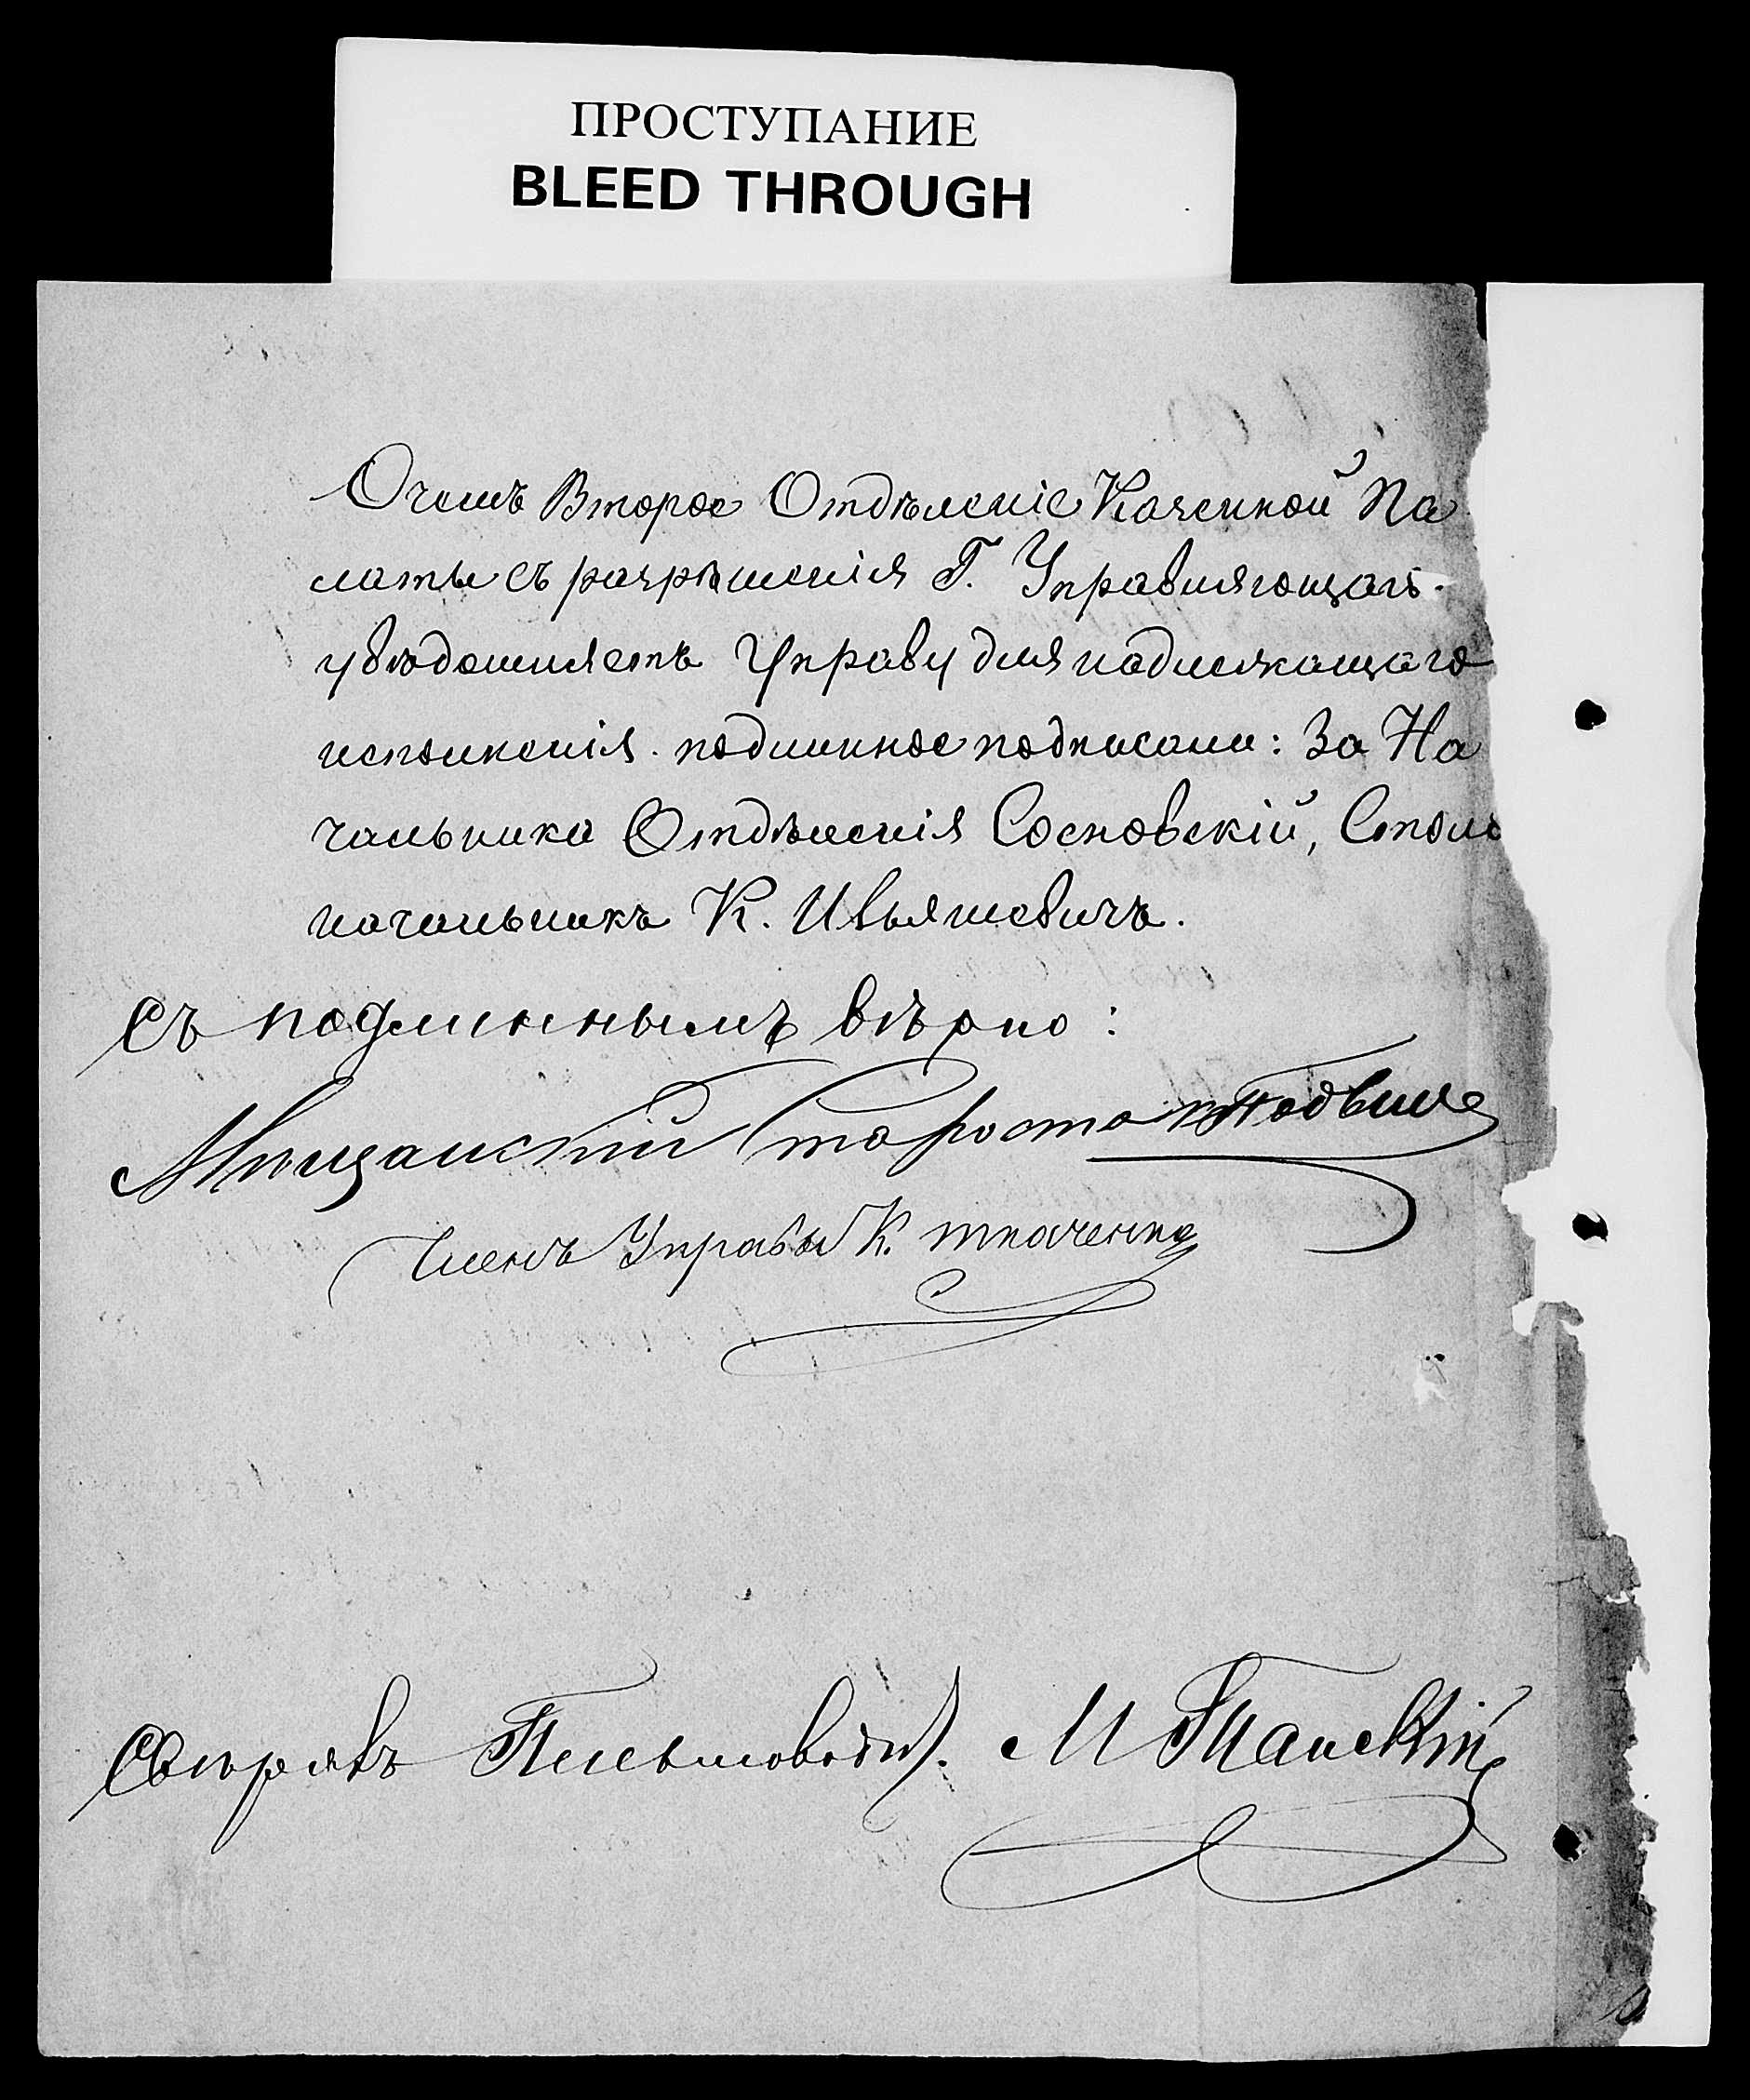 ПРОСТУПАНИЕ
BLEED THROUGH
О чемъ Второе Отдѣленіе Казенной Па
латы съ разрѣшенія Г. Управляющаго
увѣдомляетъ Управу для надлежащаго
исполненія. подлинное подписали: За На
чальника Отдѣленія Сосновскій, Столо
начальникъ К. Ивьяшевичъ.
Съ подлиннымъ вѣрно:
Мѣщанскій Староста
Членъ Управы К. Ткаченко
Свѣрялъ Письмовод. М